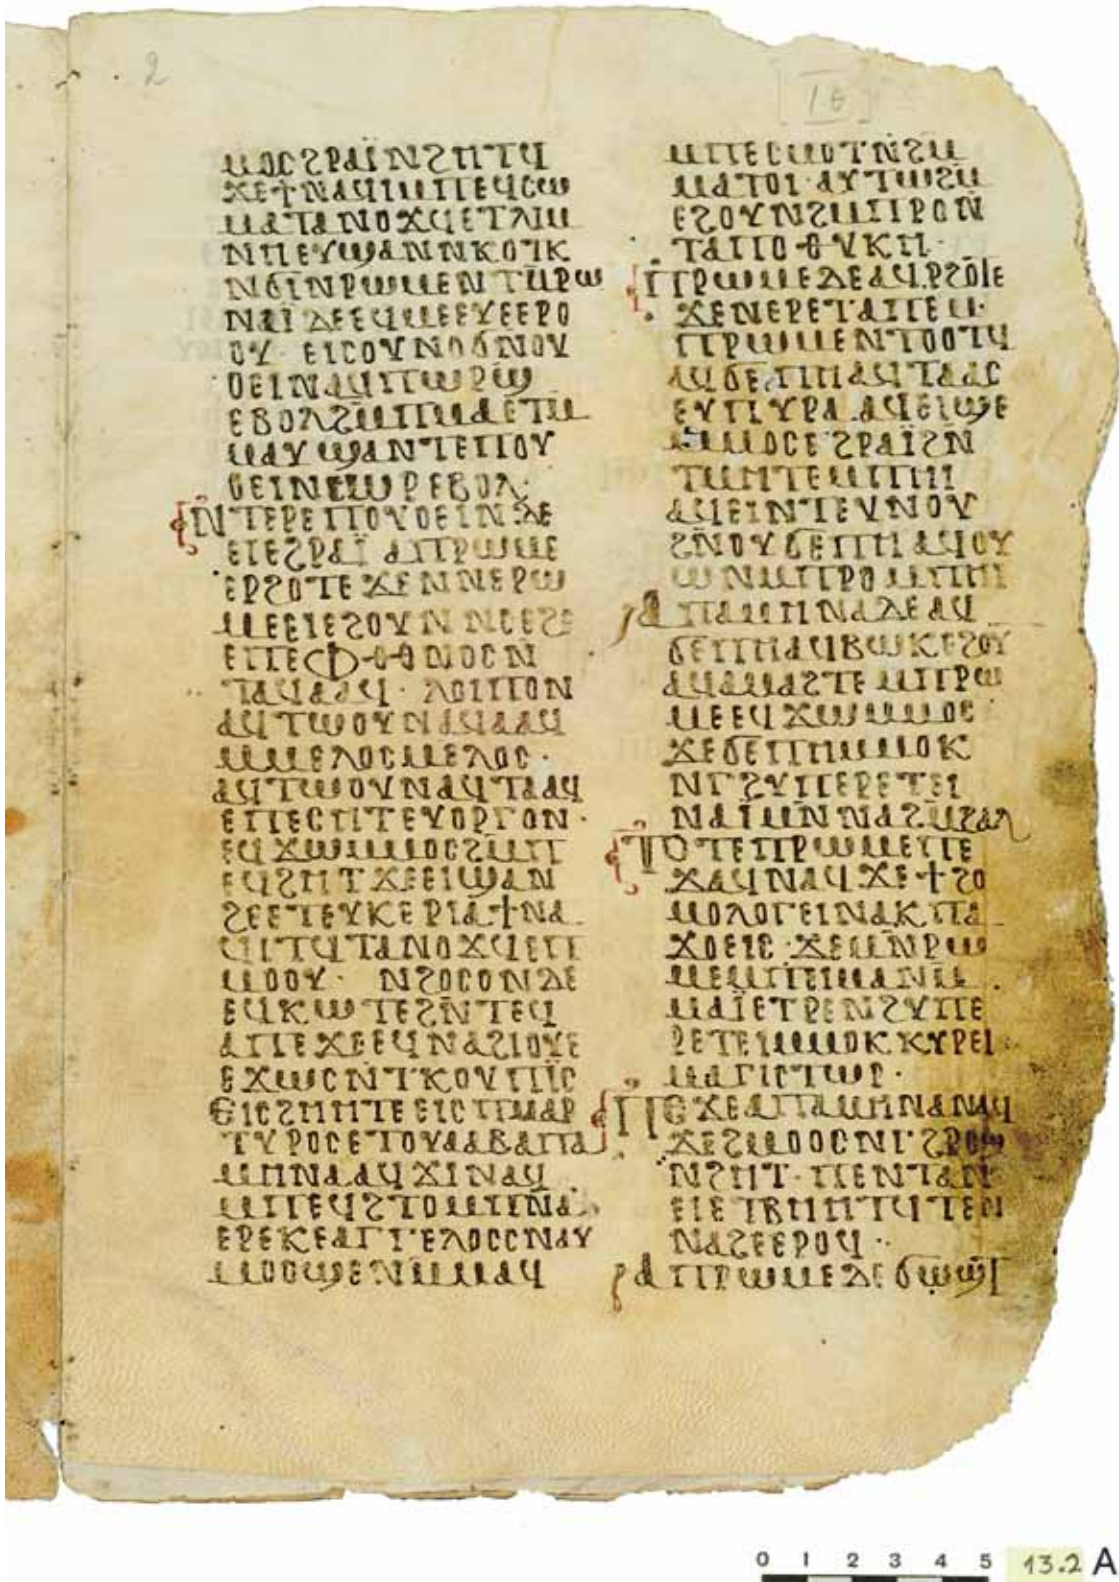 2
ⲓⲑ
ⲙⲟⲥϩⲣⲁⲓ̈ⲛϩⲏⲧϥ
ϫⲉϯⲛⲁϥⲓⲙⲡⲉϥⲥⲱ
ⲙⲁⲧⲁⲛⲟϫϥⲉⲧⲗⲓⲙ
ⲛⲏⲉⲩϣⲁⲛⲛⲕⲟⲧⲕ
ⲛϭⲓⲛⲣⲱⲙⲉⲛⲧⲡⲣⲱ
ⲛⲁⲓ̈ⲇⲉⲉϥⲙⲉⲉⲩⲉⲉⲣⲟ
ⲟⲩ· ⲉⲓⲥⲟⲩⲛⲟϭⲛⲟⲩ
ⲟⲉⲓⲛⲁϥⲡⲱⲣϣ
ⲉⲃⲟⲗϩⲙⲡⲙⲁⲉⲧⲙ
ⲙⲁⲩϣⲁⲛⲧⲉⲡⲟⲩ
ⲟⲉⲓⲛⲥⲱⲣⲉⲃⲟⲗ·
ⲛ̄ⲧⲉⲣⲉⲡⲟⲩⲟⲉⲓⲛⲇⲉ
ⲉⲓⲉϩⲣⲁⲓ̈ ⲁⲡⲣⲱⲙⲉ
ⲉⲣϩⲟⲧⲉϫⲉⲛⲛⲉⲣⲱ
ⲙⲉⲉⲓⲉϩⲟⲩⲛⲛⲥⲉϩⲉ
ⲉⲡⲉⲫⲑⲟⲛⲟⲥⲛ
ⲧⲁϥⲁⲁϥ· ⲗⲟⲓⲡⲟⲛ
ⲁϥⲧⲱⲟⲩⲛⲁϥⲁⲁϥ
ⲙⲙⲉⲗⲟⲥⲙⲉⲗⲟⲥ·
ⲁϥⲧⲱⲟⲩⲛⲁϥⲧⲁⲁϥ
ⲉⲡⲉⲥⲏⲧⲉⲩⲟⲣⲅⲟⲛ·
ⲉϥϫⲱⲙⲙⲟⲥϩⲙ̄ⲡ
ⲉϥϩⲏⲧϫⲉⲉⲓϣⲁⲛ
ϩⲉⲉⲧⲉⲩⲕⲉⲣⲓⲁϯⲛⲁ
ϥⲓⲧϥⲧⲁⲛⲟϫϥⲉⲡ
ⲙⲟⲟⲩ· ⲛϩⲟⲥⲟⲛⲇⲉ
ⲉϥⲕⲱⲧⲉϩⲛ̄ⲧⲉϥ
ⲁⲡⲉϫⲉⲉϥⲛⲁϩⲓⲟⲩⲉ
ⲉϫⲱⲥⲛ̄ⲧⲕⲟⲩⲡⲓ̈ⲥ
ⲉⲓⲥϩⲏⲏⲧⲉⲉⲓⲥⲡⲙⲁⲣ
ⲧⲩⲣⲟⲥⲉⲧⲟⲩⲁⲁⲃⲁⲡⲁ
ⲙⲏⲛⲁⲁϥϫⲓⲛⲁϥ
ⲙⲡⲉϥϩⲧⲟⲙⲡⲛ̄ⲁ
ⲉⲣⲉⲕⲉⲁⲅⲅⲉⲗⲟⲥⲥⲛⲁⲩ
ⲙⲟⲟϣⲉⲛⲙ̄ⲙⲁϥ
ⲙⲡⲉⲥⲙⲟⲧⲛ̄ϩⲙ̄
ⲙⲁⲧⲟⲓ·ⲁⲩⲧⲱϩⲙ
ⲉϩⲟⲩⲛϩⲙⲡⲣⲟⲛ
ⲧⲁⲡⲟⲑⲩⲕⲏ·
ⲡⲣⲱⲙⲉⲇⲉⲁϥⲣϩⲟⲓⲉ
ϫⲉⲛⲉⲣⲉⲧⲁⲡⲉⲙ·
ⲡⲣⲱⲙⲉⲛⲧⲟⲟⲧϥ
ⲁϥϭⲉⲡⲏⲁϥⲧⲁⲁⲥ
ⲉⲩⲡⲩⲣⲁ·ⲁϥⲉⲓϣⲉ
ⲙⲙⲟⲥⲉϩⲣⲁⲓ̈ϩⲛ̄
ⲧⲙⲏⲧⲉⲙⲡⲏⲓ
ⲁϥⲉⲓⲛⲧⲉⲩⲛⲟⲩ
ϩⲛ̄ⲟⲩϭⲉⲡⲏⲁϥⲟⲩ
ⲱⲛⲙⲡⲣⲟⲙⲡⲏⲓ
ⲁⲡⲁⲙⲏⲛⲁⲇⲉⲁϥ
ϭⲉⲡⲏⲁϥⲃⲱⲕⲉϩⲟⲩ
ⲁϥⲁⲙⲁϩⲧⲉⲙⲡⲣⲱ
ⲙⲉⲉϥϫⲱⲙⲙⲟⲥ
ϫⲉϭⲉⲡⲏⲙⲙⲟⲕ
ⲛⲅϩⲩⲡⲉⲣⲉⲧⲉⲓ
ⲛⲁⲓ̈ⲙⲛ̄ⲛⲁϩⲙ̄ϩⲁⲗ
ⲧⲟⲧⲉⲡⲣⲱⲙⲉⲡⲉ
ϫⲁϥⲛⲁϥϫⲉϯϩⲟ
ⲙⲟⲗⲟⲅⲉⲓⲛⲁⲕⲡⲁ
ϫⲟⲉⲓⲥ·ϫⲉⲙⲛ̄ⲣⲱ
ⲙⲉⲙⲡⲉⲓⲙⲁⲛⲙ
ⲙⲁⲓ̈ⲉⲧⲣⲉⲛϩⲩⲡⲉ
ⲣⲉⲧⲉⲓⲙⲙⲟⲕⲕⲩⲣⲉⲓ
ⲙⲁⲅⲓⲥⲧⲱⲣ·
ⲡⲉϫⲉⲁⲡⲁⲙⲏⲛⲁⲛⲁϥ
ϫⲉϩⲙⲟⲟⲥⲛⲅϩⲣⲟϣ
ⲛϩⲏⲧ·ⲡⲉⲛⲧⲁⲛ
ⲉⲓⲉⲧⲃⲏⲏⲧϥⲧⲉⲛ
ⲛⲁϩⲉⲉⲣⲟϥ·
ⲁⲡⲣⲱⲙⲉⲇⲉϭⲱϣⲧ
0 1 2 3 4 5 13.2 A